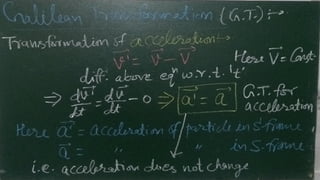 Galilean Transformation (G.T.) :→
Transformation of acceleration :→
V⃗' = V⃗ - V⃗ Here V⃗ = Const.
diff. above eqⁿ w.r.t. 't'
⇒ dV⃗'/dt = dV⃗/dt - 0 ⇒ a⃗' = a⃗ G.T. for acceleration
Here a⃗' = acceleration of particle in S-frame
a⃗ = " " in S-frame
i.e. acceleration does not change